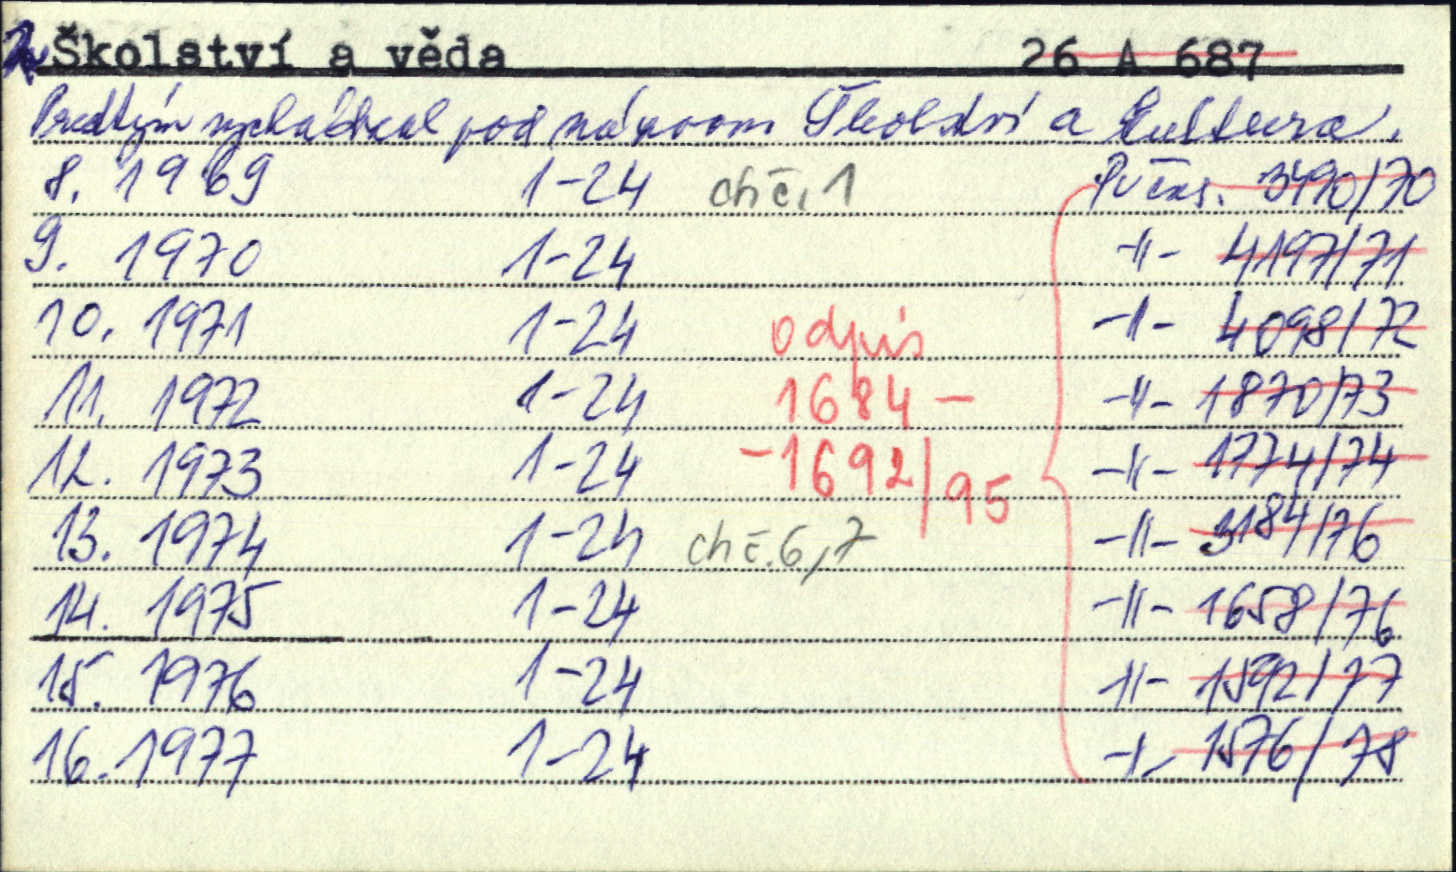 Školství a věda 26 A 687
Predtým vychádzal pod názvom Školství a kultura.
8. 1969 1-24 ch č. 1 Pv čas. 3490/70
9. 1970 1-24 -II- 4197/71
10. 1971 1-24 odpis -II- 4098/72
11. 1972 1-24 1684- -II- 1870/73
12. 1973 1-24 -1692/95 -II- 1774/74
13. 1974 1-24 ch č. 6,7 -II- 3184/76
14. 1975 1-24 -II- 1658/76
15. 1976 1-24 -II- 1592/77
16. 1977 1-24 -II- 1576/78